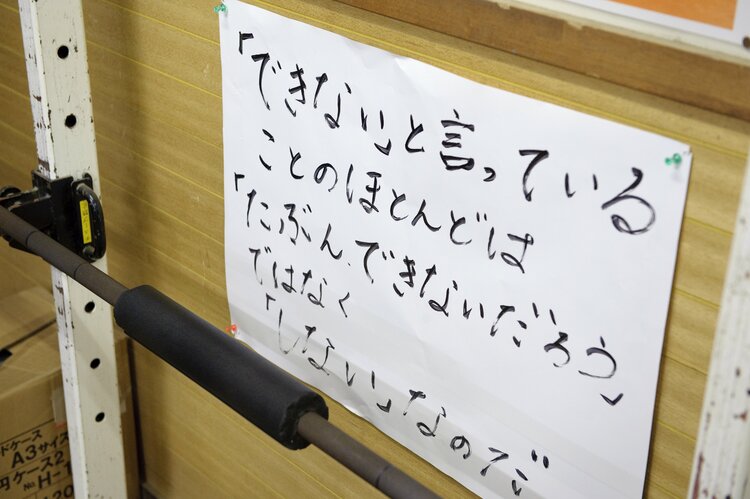 「できない」と言っている
ことのほとんどは
「たぶん、できないだろう」
ではなく
「しない」なのだ
ドケース
A3サイズ
円ケース2
No H-1